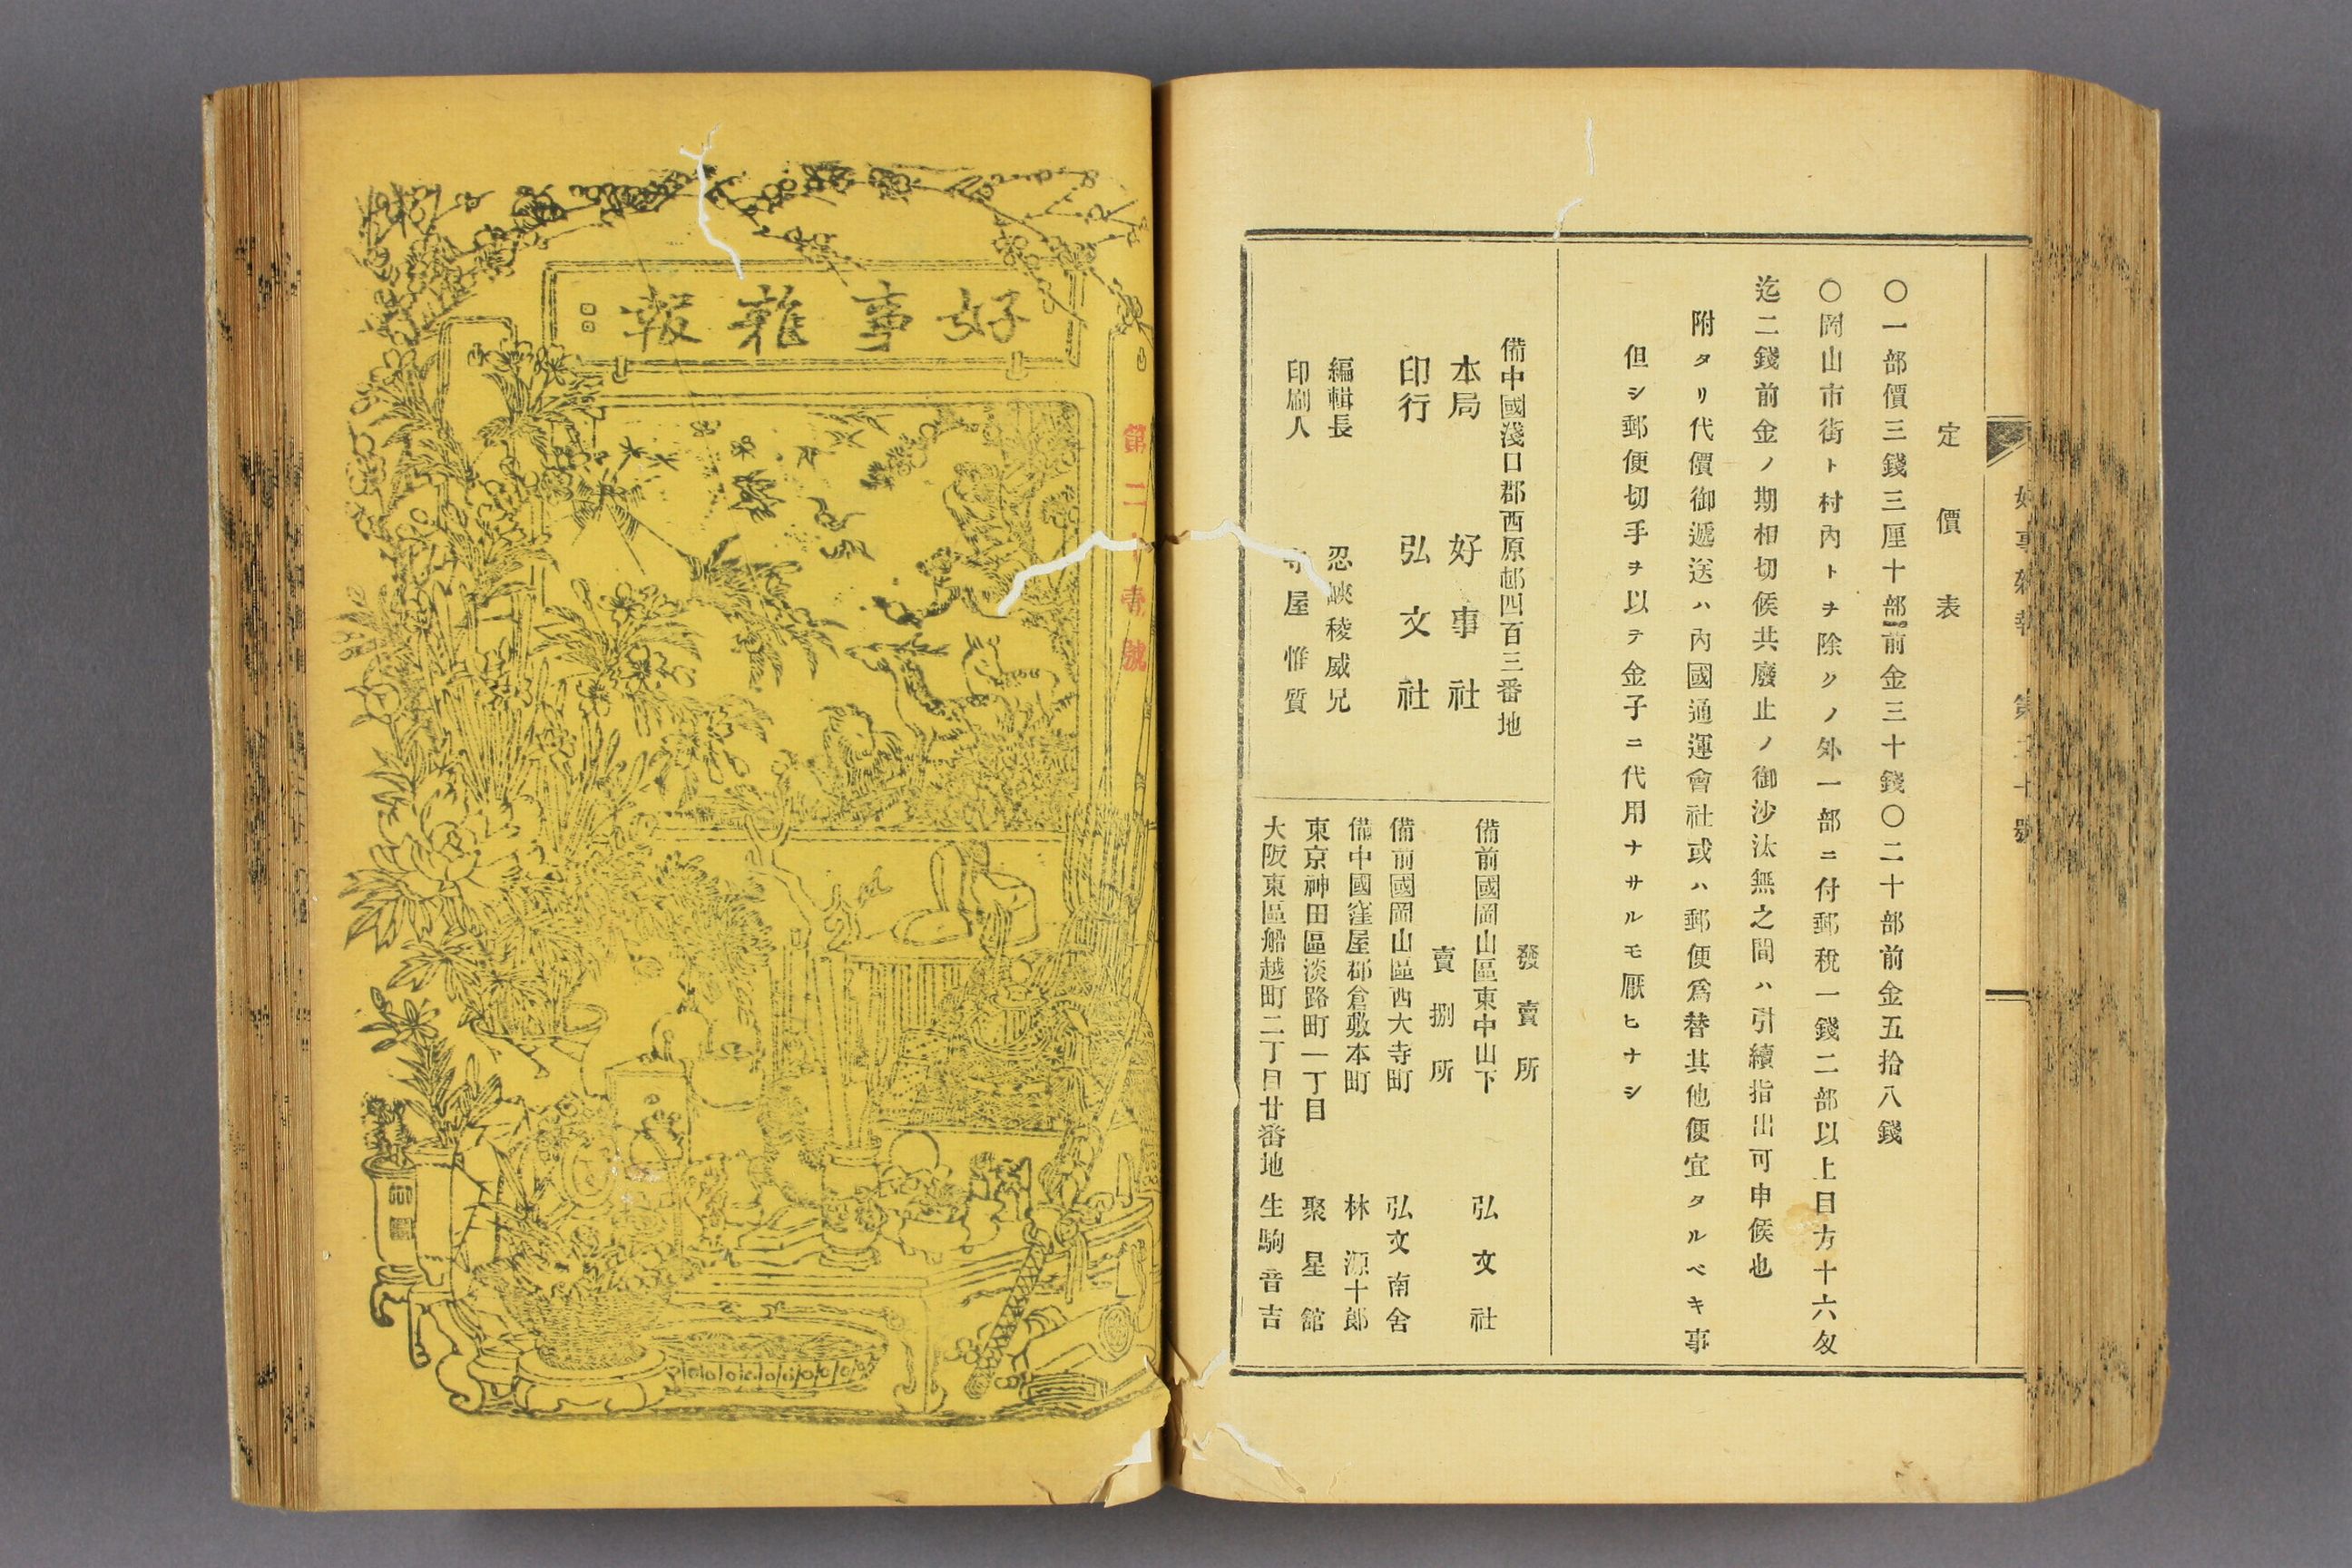 好事雜報 第二十號
定價表
〇一部價三錢三厘十部前金三十錢〇二十部前金五拾八錢
〇岡山市街ト村內トヲ除クノ外一部ニ付郵稅一錢二部以上目方十六匁
迄二錢前金ノ期相切候共廢止ノ御沙汰無之間ハ引續指出可申候也
附タリ代價御遞送ハ內國通運會社或ハ郵便爲替其他便宜タルベキ事
但シ郵便切手ヲ以テ金子ニ代用ナサルモ厭ヒナシ
備中國淺口郡西原邨四百三番地
本局 好事社
印行 弘文社
編輯長 忍峽稜威兄
印刷人 守屋惟質
發賣所
備前國岡山區東中山下 弘文社
賣捌所
備前國岡山區西大寺町 弘文南舍
備中國窪屋郡倉敷本町 林源十郎
東京神田區淡路町一丁目 聚星館
大阪東區船越町二丁目廿番地 生駒音吉
第二十壹號
好事雜報